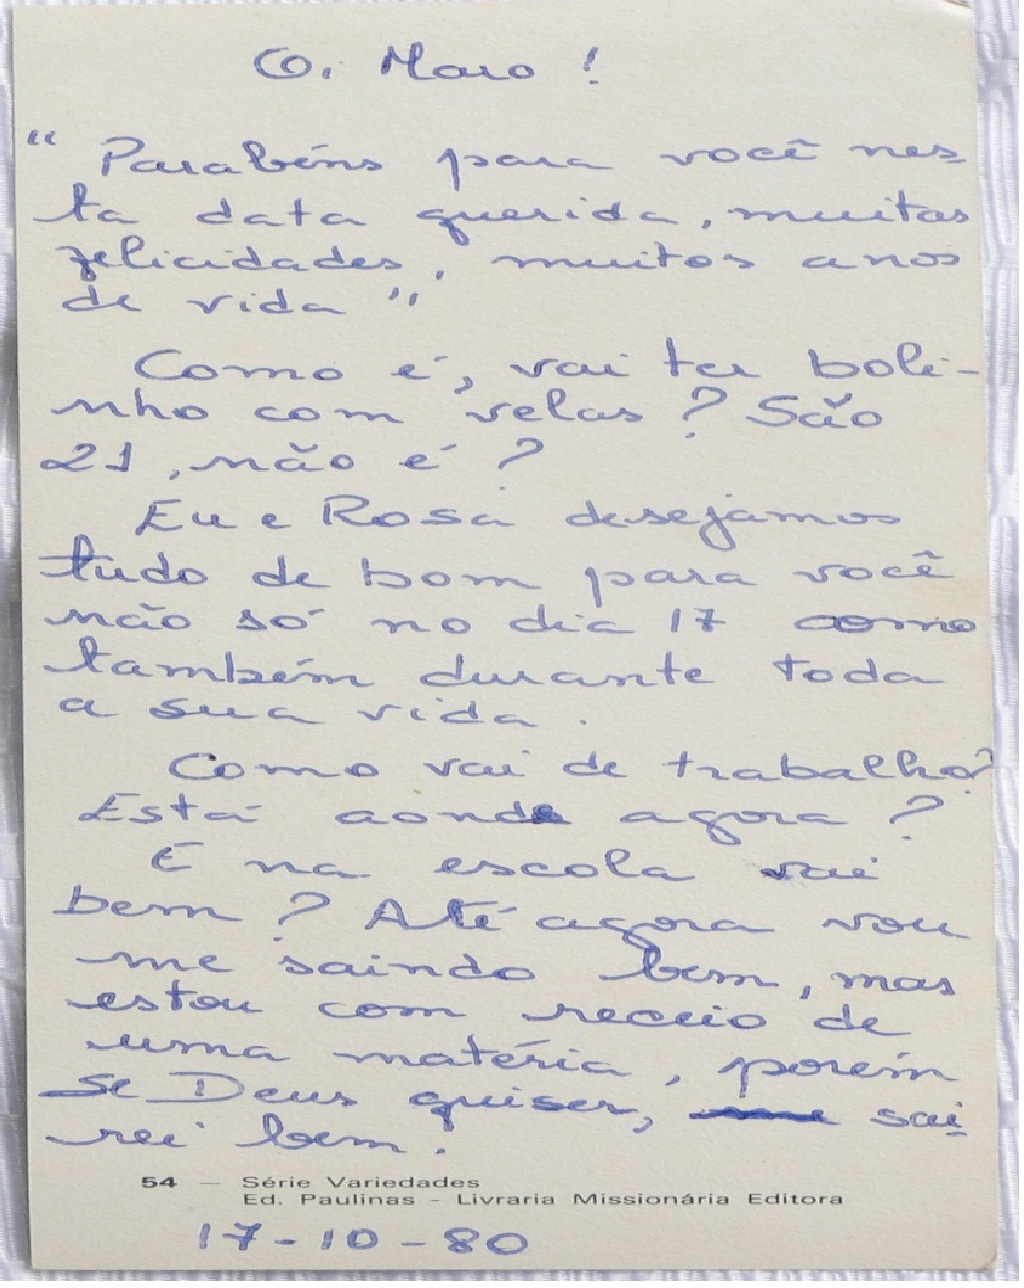 Oi Maro !
" Parabéns para você nes-
ta data querida, muitas
felicidades, muitos anos
de vida "
Como é, vai ter boli-
nho com velas ? São
21, não é ?
Eu e Rosa desejamos
tudo de bom para você
não só no dia 17 como
também durante toda
a sua vida .
Como vai de trabalho?
Está aonde agora ?
E na escola vai
bem ? Até agora vou
me saindo bem, mas
estou com receio de
uma matéria, porém
se Deus quiser, sai
rei bem .
54 — Série Variedades
Ed. Paulinas - Livraria Missionária Editora
17-10-80